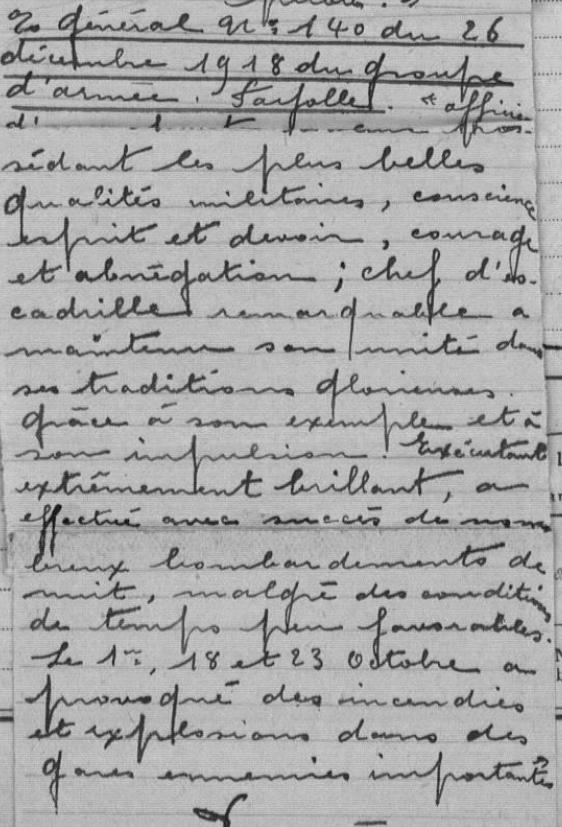 général n°: 140 du 26
décembre 1918 du groupe
d'armée. Fayolle. "officier
d'
sédant les plus belles
qualités militaires, conscience
esprit et devoir, courage
et abnégation ; chef d'es-
cadrille remarquable a
maintenu son unité dans
ses traditions glorieuses.
grâce à son exemple et à
son impulsion. Exécutant
extrêmement brillant, a
effectué avec succès de nom
breux bombardements de
nuit, malgré des conditions
de temps peu favorables.
Le 1er, 18 et 23 Octobre a
provoqué des incendies
et explosions dans des
gares ennemies importantes"